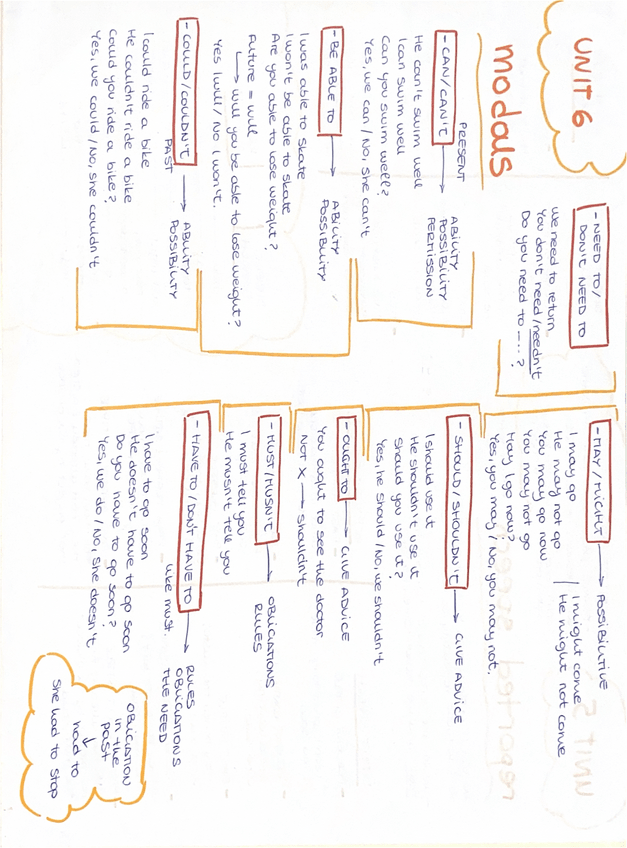 UNIT 6
modals
- CAN/CAN'T → ABILITY
PRESENT POSSIBILITY
PERMISSION
He can't swim well
I can swim well
Can you swim well?
Yes, we can / No, she can't
- BE ABLE TO → ABILITY
POSSIBILITY
I was able to skate
I won't be able to skate
Are you able to lose weight?
Future = will
→ will you be able to lose weight?
Yes I will / No I won't.
- COULD/COULDN'T → ABILITY
PAST POSSIBILITY
I could ride a bike
He couldn't ride a bike
Could you ride a bike?
Yes, we could / No, she couldn't
- NEED TO/
DON'T NEED TO
We need to return
You don't need / needn't
Do you need to ----?
- MAY/MIGHT → POSSIBILITIE
I may go
He may not go
You may go now
You may not go
May I go now?
Yes, you may / No, you may not.
I might come
He might not come
- SHOULD/SHOULDN'T → GIVE ADVICE
I should use it
He shouldn't use it
Should you use it?
Yes, he should / No, we shouldn't
- OUGHT TO → GIVE ADVICE
You ought to see the doctor
Not X → shouldn't
- MUST/MUSN'T → OBLIGATIONS
RULES
I must tell you
He musn't tell you
- HAVE TO / DON'T HAVE TO → RULES
like must. OBLIGATIONS
THE NEED
I have to go soon
He doesn't have to go soon
Do you have to go soon?
Yes, we do / No, she doesn't
OBLIGATION
in the
past
↓
had to
She had to stop